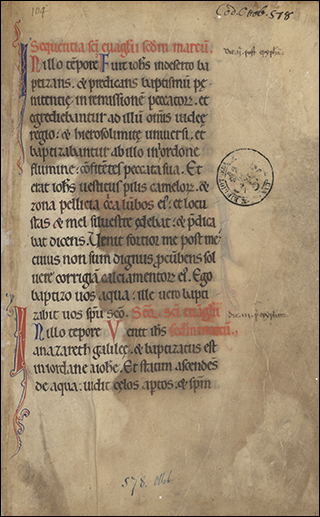 104
Cod. Ottob. 578
Sequentia sci euaglii scdm marcu.
In illo tepore Fuit iohs in deserto ba
ptizans. & predicans baptismu pe
nitentie in remissione peccator. et
egrediebantur ad illu omis iudee
regio. & hierosolimite uniuersi. et
baptizabantur ab illo in iordane
flumine. cofitetes peccata sua. Et
erat iohs uestitus pilis cameloR. &
zona pellicia circa lubos ei. et locu
stas & mel siluestre edebat. & pdica
bat dicens. Uenit fortior me post me
cuius non sum dignus pcubens sol
uere corrigia calciamentor ei. Ego
baptizo uos aqua. ille uero bapti
zabit uos spu sco. Scdm. sci euaglii
In illo tepore Uenit ihs scdm marcu.
a nazareth galilee. & baptizatus est
in iordane a iohe. Et statim ascedes
de aqua. uidit celos aptos. & spm
578. Ottob.